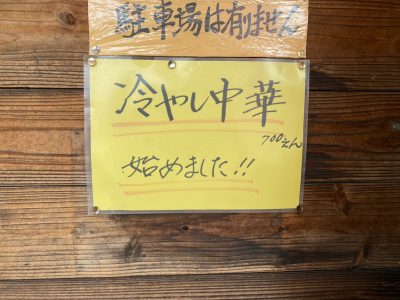 駐車場は有りません
冷やし中華
700えん
始めました!!